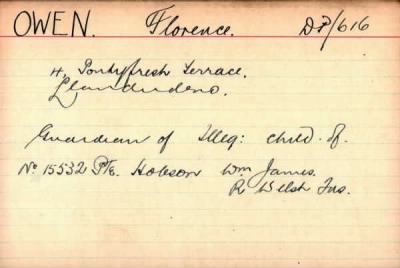 OWEN. Florence. DP/616
4, Pontyfresh Terrace.
Llandudno.
Guardian of Illeg: child of.
No 15532 Pte. Hobson Wm James.
R Welsh Fus.